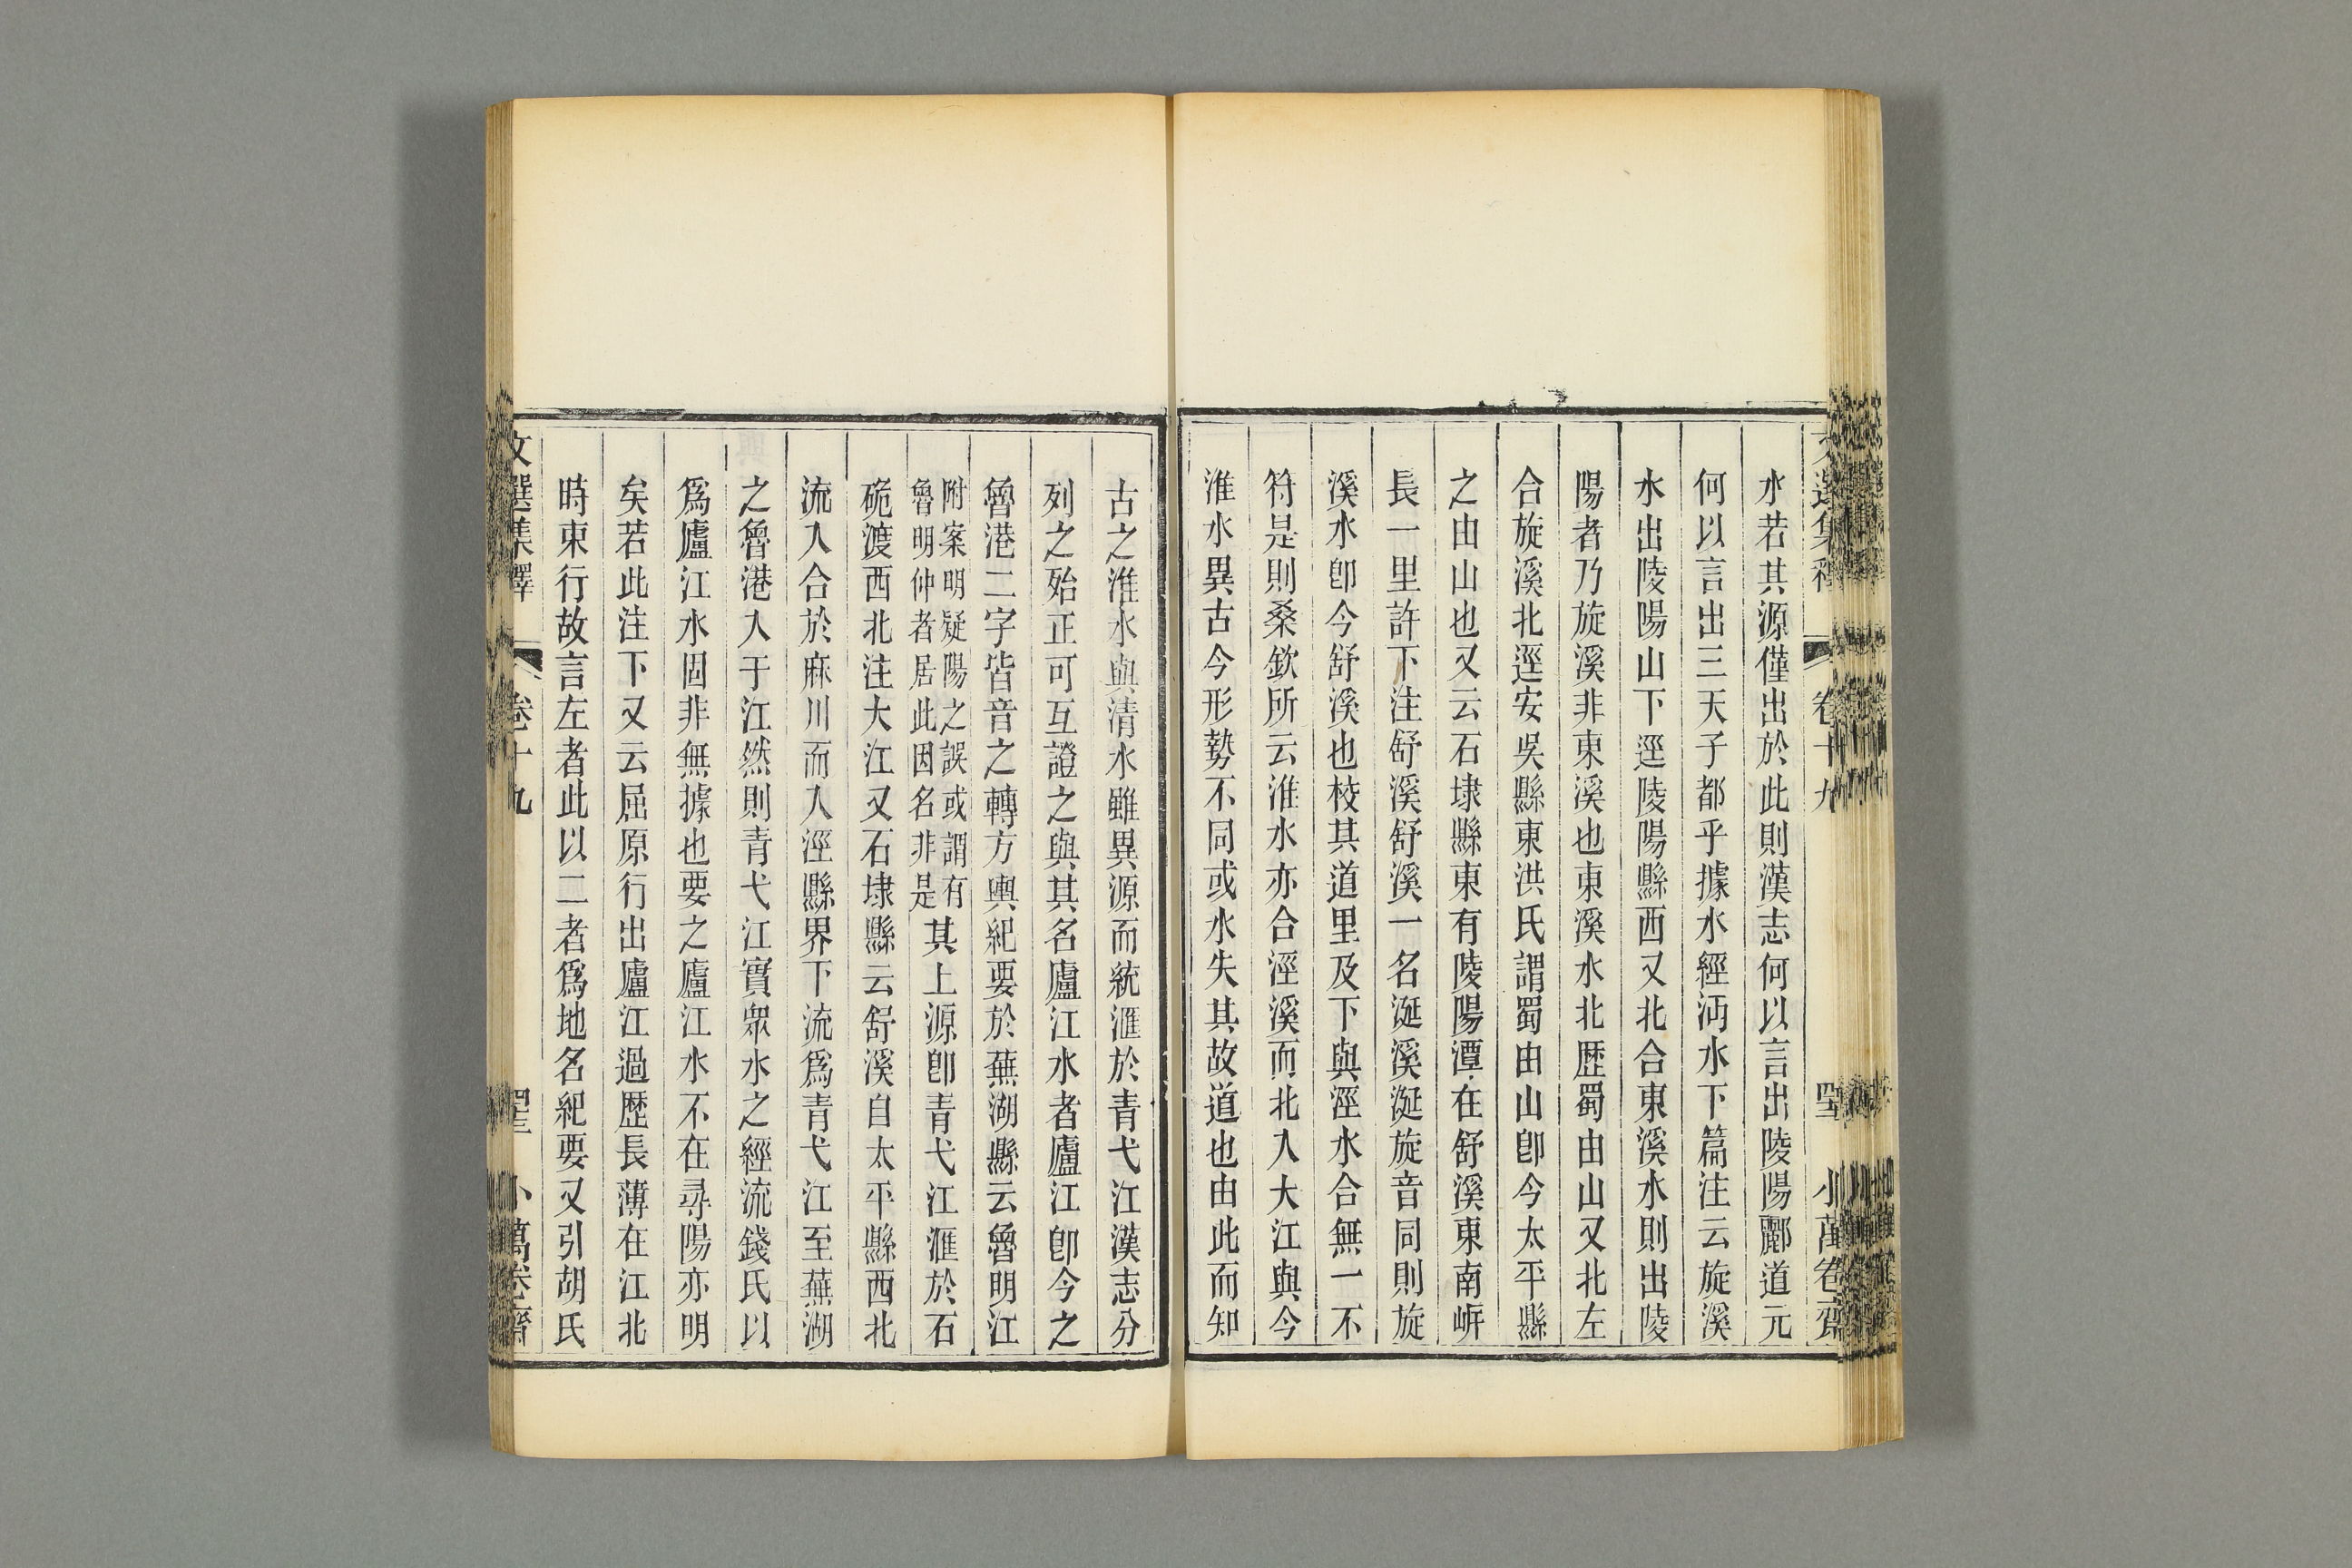 水若其源僅出於此則漢志何以言出陵陽酈道元
何以言出三天子都乎據水經沔水下篇注云旋溪
水出陵陽山下逕陵陽縣西又北合東溪水則出陵
陽者乃旋溪非東溪也東溪水北歷蜀由山又北左
合旋溪北逕安吳縣東洪氏謂蜀由山卽今太平縣
之由山也又云石埭縣東有陵陽潭在舒溪東南㟁
長一里許下注舒溪舒溪一名涎溪涎旋音同則旋
溪水卽今舒溪也校其道里及下與涇水合無一不
符是則桑欽所云淮水亦合涇溪而北入大江與今
淮水異古今形勢不同或水失其故道也由此而知
古之淮水與清水雖異源而統滙於青弋江漢志分
列之殆正可互證之與其名廬江水者廬江卽今之
魯港二字皆音之轉方輿紀要於蕪湖縣云魯明江
附案明疑陽之誤或謂有
魯明仲者居此因名非是
其上源卽青弋江滙於石
硊渡西北注大江又石埭縣云舒溪自太平縣西北
流入合於麻川而入涇縣界下流爲青弋江至蕪湖
之魯港入于江然則青弋江實眾水之經流錢氏以
爲廬江水固非無據也要之廬江水不在尋陽亦明
矣若此注下又云屈原行出廬江過歷長薄在江北
時東行故言左者此以二者爲地名紀要又引胡氏
文選集釋
卷十九
小萬卷齋